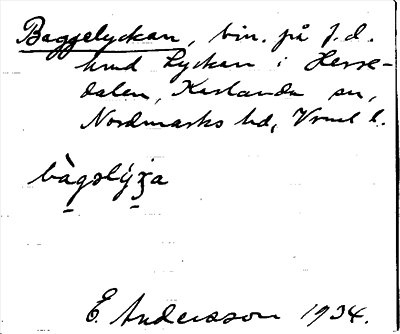 Baggelyckan, bin. på f.d.
hmd Lyckan i Herre-
dalen, Karlanda sn,
Nordmarks hd, Vrml l.
E. Andersson 1934.